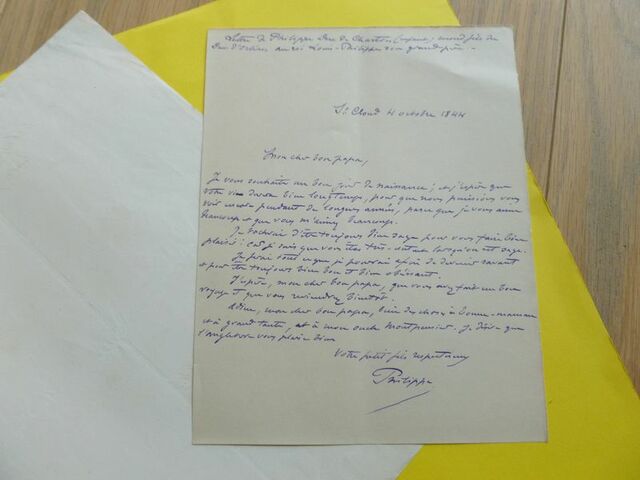 Lettre de Philippe Duc de Chartres (enfant) second fils du
Duc d'Orléans au roi Louis-Philippe son grand père -
St Cloud 4 octobre 1844
Mon cher bon papa,
Je vous souhaite un bon jour de naissance ; et j'espère que
votre vie durera bien longtemps, pour que nous puissions vous
voir encore pendant de longues années, parce que je vous aime
beaucoup et que vous m'aimez beaucoup.
Je tacherai d'être toujours bien sage pour vous faire bien
plaisir ; car je sais que vous êtes très lorsqu'on est sage.
Je ferai tout ce que je pourrai afin de devenir savant
et pour être toujours bien bon et bien obéissant.
J'espère, mon cher bon papa, que vous avez fait un bon
voyage et que vous reviendrez bientôt.
Adieu, mon cher bon papa, bien des choses à bonne-maman
et à grand tante, et à mon oncle Montpensier. Je désire que
l'Angleterre vous plaise bien
Votre petit fils respectueux
Philippe